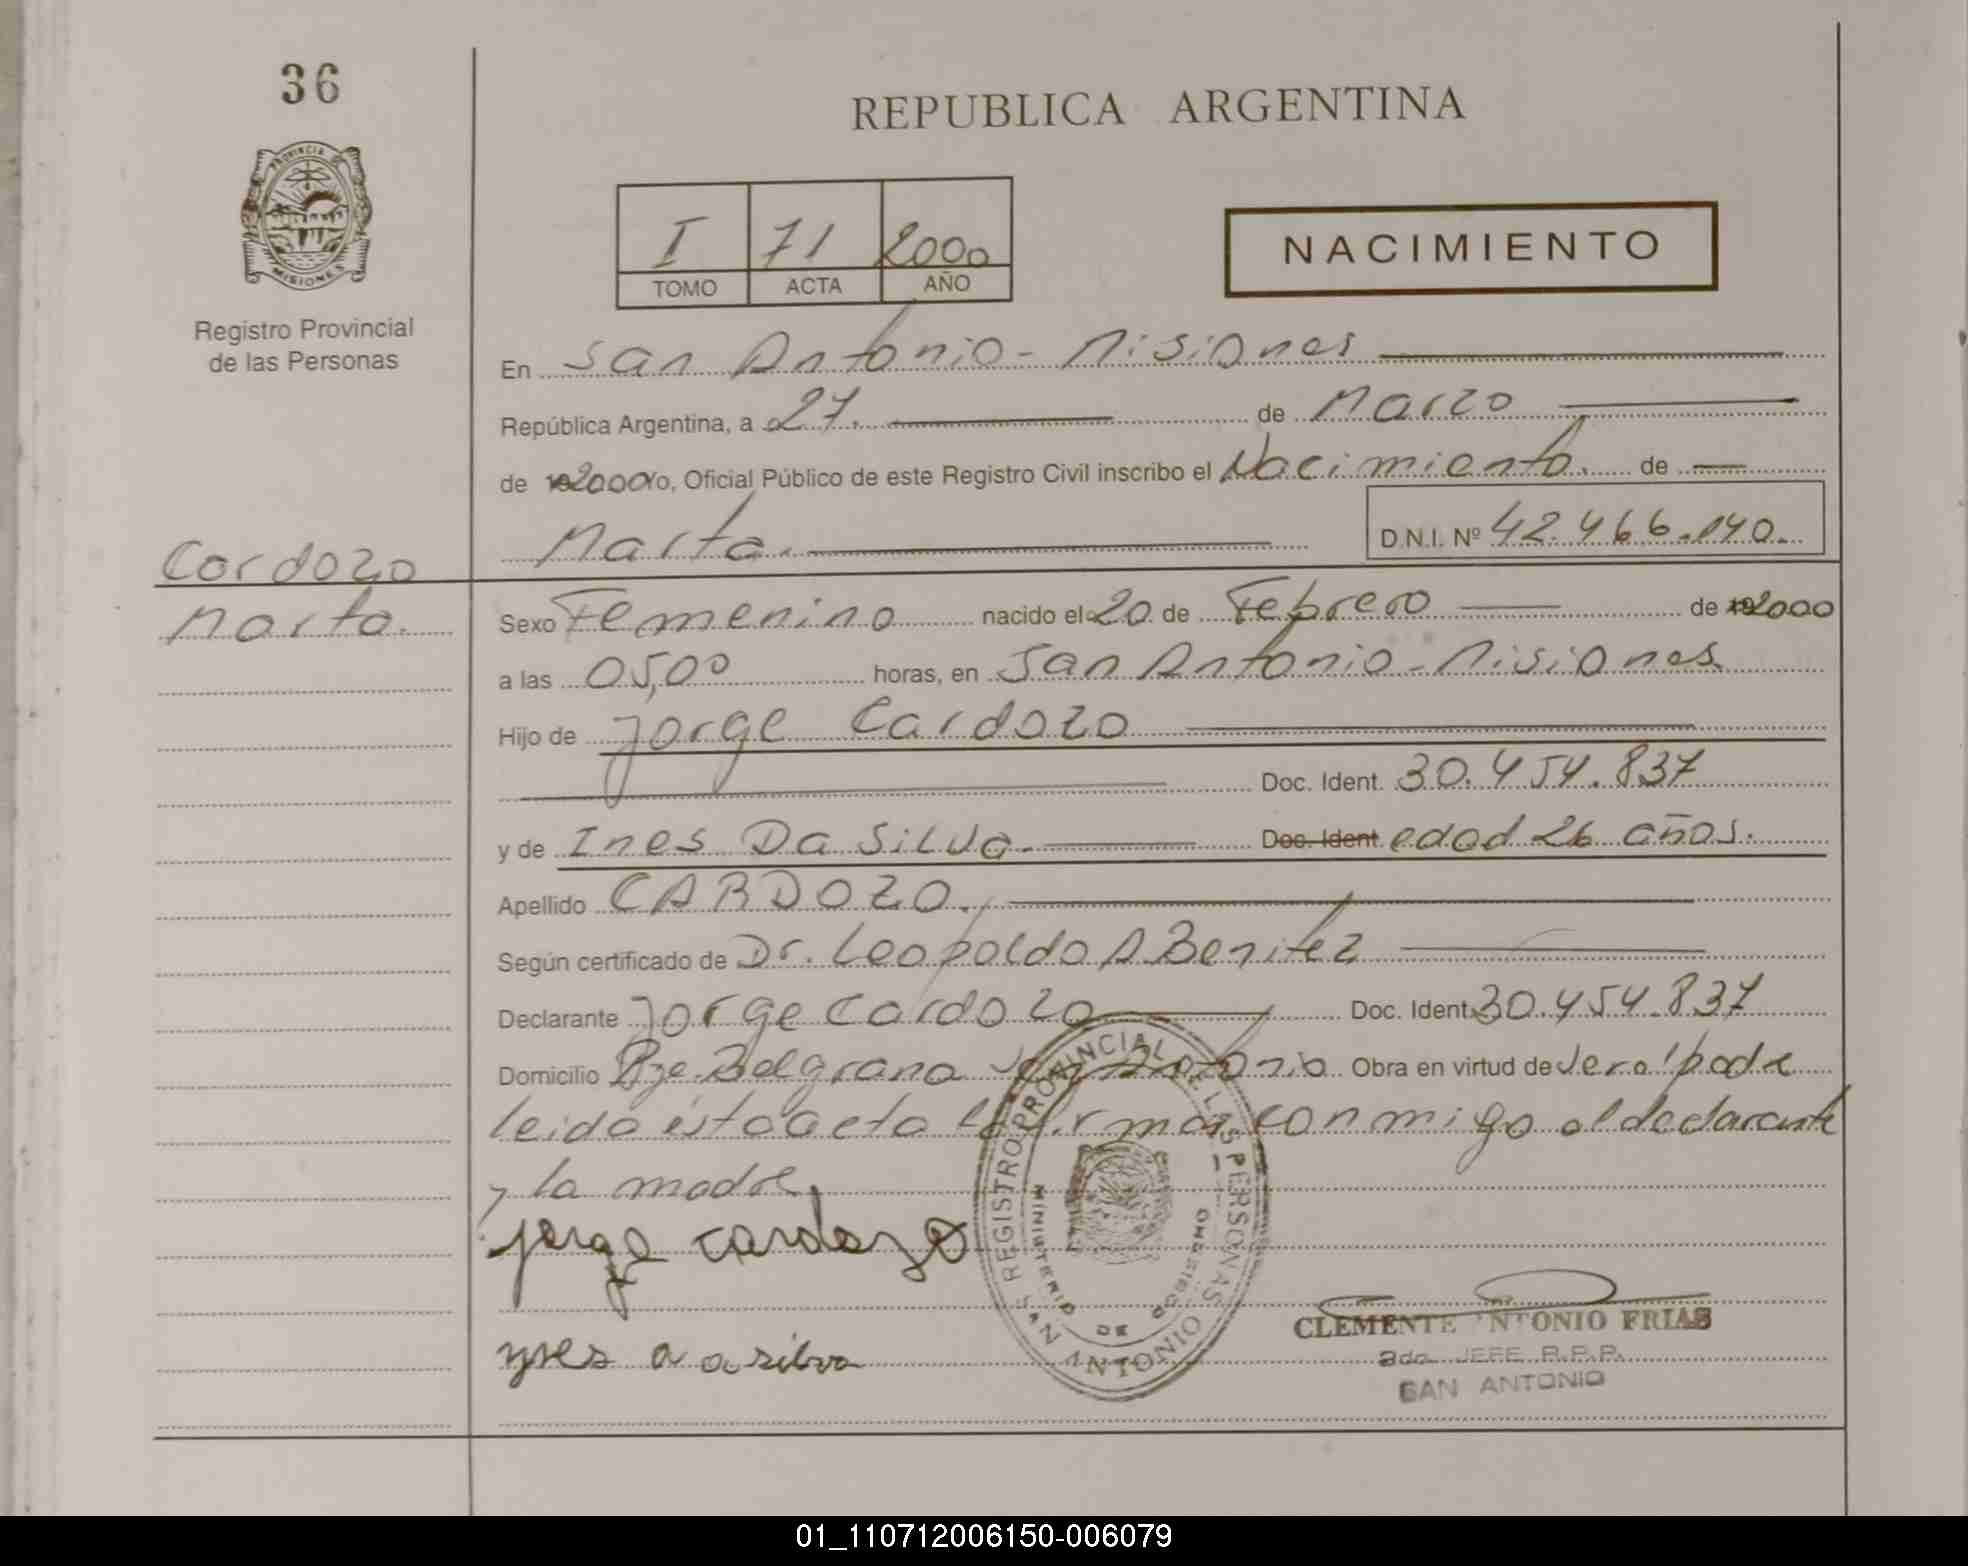 36
REPUBLICA ARGENTINA
PROVINCIA DE
MISIONES
Registro Provincial
de las Personas
I 71 2000
TOMO ACTA AÑO
NACIMIENTO
En San Antonio - Misiones
República Argentina, a 27. de Marzo
de 2000 Yo, Oficial Público de este Registro Civil inscribo el Nacimiento. de
Marta. D.N.I. Nº 42.466.140.
Cardozo
Marta.
Sexo Femenino nacido el 20 de Febrero de 2000
a las 05,00 horas, en San Antonio - Misiones
Hijo de Jorge Cardozo
Doc. Ident. 30.454.837
y de Ines Da Silva. Doc. Ident. edad 26 años.
Apellido CARDOZO.
Según certificado de Dr. Leopoldo A Benitez
Declarante Jorge Cardozo Doc. Ident. 30.454.837
Domicilio Pje. Belgrano San Antonio Obra en virtud de ser el padre
leida esta acta la firman conmigo el declarante
y la madre
jorge cardozo
REGISTRO PROVINCIAL DE LAS PERSONAS
MINISTERIO DE GOBIERNO
SAN ANTONIO
CLEMENTE ANTONIO FRIAS
2do JEFE R.P.P.
SAN ANTONIO
ynes a a silva
01_110712006150-006079